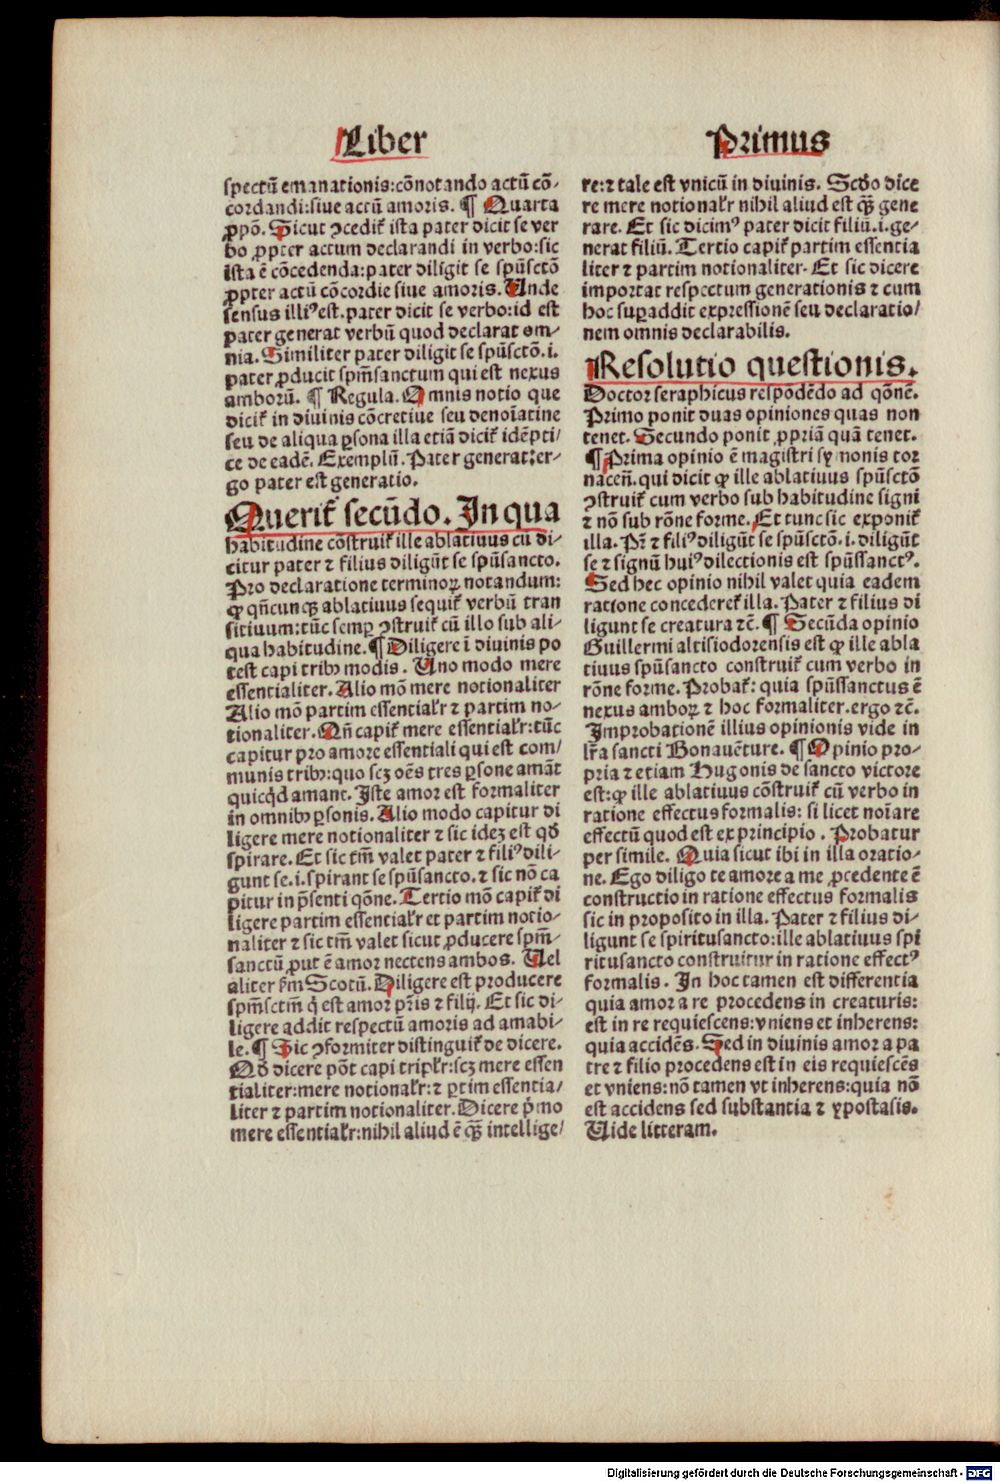 Liber
Primus
spectū emanationis:cōnotando actū cō-
cordandi:siue actū amoris. ¶ Quarta
ꝓpō. Sicut ꝯcedit̃ ista pater dicit se ver
bo ꝓpter actum declarandi in verbo:sic
ista ē cōcedenda:pater diligit se spūsctō
ꝓpter actū cōcordie siue amoris. Unde
sensus illiꝰ est. pater dicit se verbo:id est
pater generat verbū quod declarat om-
nia. Similiter pater diligit se spūsctō.i.
pater ꝓducit spm̄sanctum qui est nexus
amborū. ¶ Regula. Omnis notio que
dicit̃ in diuinis cōcretiue seu denoīatiue
seu de aliqua ꝑsona illa etiā dicit̃ idēpti/
ce de eadē. Exemplū. Pater generat:er-
go pater est generatio.
Querit̃ secūdo. In qua
habitudine cōstruit̃ ille ablatiuus cū di-
citur pater ⁊ filius diligūt se spūsancto.
Pro declaratione terminoꝝ notandum:
ꝙ qn̄cunqꝫ ablatiuus sequit̃ verbū tran
sitiuum:tūc semꝑ ꝯstruit̃ cū illo sub ali-
qua habitudine. ¶ Diligere ī diuinis po
test capi tribꝰ modis. Uno modo mere
essentialiter. Alio mō mere notionaliter
Alio mō partim essentialr̃ ⁊ partim no-
tionaliter. Qn̄ capit̃ mere essentialr̃:tūc
capitur pro amore essentiali qui est com/
munis tribꝰ:quo scꝫ oēs tres ꝑsone amāt
quicq̇d amant. Iste amor est formaliter
in omnibꝰ ꝑsonis. Alio modo capitur di
ligere mere notionaliter ⁊ sic ideꝫ est qđ
spirare. Et sic tm̄ valet pater ⁊ filiꝰ dili-
gunt se.i. spirant se spūsancto. ⁊ sic nō ca
pitur in p̄senti qōne. Tertio mō capit̃ di
ligere partim essentialr̃ et partim notio-
naliter ⁊ sic tm̄ valet sicut ꝓducere spm̄-
sanctū ꝓut ē amor nectens ambos. Uel
aliter ẜm Scotū. Diligere est producere
spm̄sctm̄ q̇ est amor pr̃is ⁊ filij. Et sic di-
ligere addit respectū amoris ad amabi-
le. ¶ Sic ꝯformiter distinguit̃ de dicere.
Qđ dicere pōt capi triplr̃:scꝫ mere essen
tialiter:mere notionalr̃:⁊ ꝑtim essentia/
liter ⁊ partim notionaliter. Dicere p̍mo
mere essentialr̃:nihil aliud ē qꝫ̃ intellige/
re:⁊ tale est vnicū in diuinis. Scđo dice
re mere notionalr̃ nihil aliud est qꝫ̃ gene
rare. Et sic dicimꝰ pater dicit filiū.i.ge-
nerat filiū. Tertio capit̃ partim essentia
liter ⁊ partim notionaliter. Et sic dicere
importat respectum generationis ⁊ cum
hoc suꝑaddit expressionē seu declaratio/
nem omnis declarabilis.
Resolutio questionis.
Doctor seraphicus respōdēdo ad qōnē.
Primo ponit duas opiniones quas non
tenet. Secundo ponit ꝓpriā quā tenet.
¶ Prima opinio ē magistri symonis tor
nacen̄. qui dicit ꝙ ille ablatiuus spūsctō
ꝯstruit̃ cum verbo sub habitudine signi
⁊ nō sub rōne forme. Et tunc sic exponit̃
illa. Pr̃ ⁊ filiꝰ diligūt se spūsctō.i. diligūt
se ⁊ signū huiꝰ dilectionis est spūssanctꝰ.
Sed hec opinio nihil valet quia eadem
ratione concederet̃ illa. Pater ⁊ filius di
ligunt se creatura ⁊c̄. ¶ Secūda opinio
Guillermi altisiodorensis est ꝙ ille abla
tiuus spūsancto construit̃ cum verbo in
rōne forme. Probat̃: quia spūssanctus ē
nexus amboꝝ ⁊ hoc formaliter. ergo ⁊c̄.
Improbationē illius opinionis vide in
lr̃a sancti Bonauēture. ¶ Opinio pro-
pria ⁊ etiam Hugonis de sancto victore
est:ꝙ ille ablatiuus cōstruit̃ cū verbo in
ratione effectus formalis: si licet noīare
effectū quod est ex principio. Probatur
per simile. Quia sicut ibi in illa oratio-
ne. Ego diligo te amore a me ꝓcedente ē
constructio in ratione effectus formalis
sic in proposito in illa. Pater ⁊ filius di-
ligunt se spiritusancto:ille ablatiuus spi
ritusancto construitur in ratione effectꝰ
formalis. In hoc tamen est differentia
quia amor a re procedens in creaturis:
est in re requiescens:vniens et inherens:
quia accidēs. Sed in diuinis amor a pa
tre ⁊ filio procedens est in eis requiescēs
et vniens:nō tamen vt inherens:quia nō
est accidens sed substantia ⁊ ypostasis.
Uide litteram.
Digitalisierung gefördert durch die Deutsche Forschungsgemeinschaft - DFG